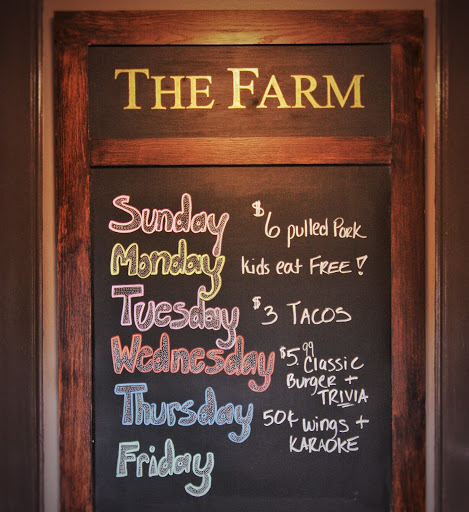 THE FARM
Sunday $6 pulled Pork
Monday kids eat FREE!
Tuesday $3 TACOS
Wednesday $5.99 Classic
Burger +
TRIVIA
Thursday 50¢ wings +
KARAOKE
Friday